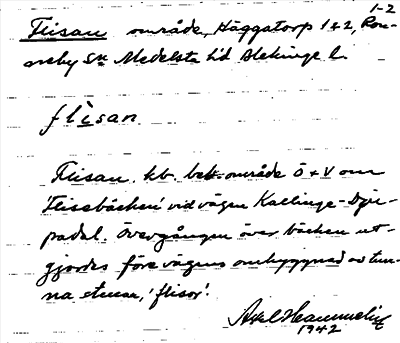 1-2
Flisan område, Häggatorp 1+2, Ron-
neby Sn Medelsta hd Blekinge l.
flisan
Flisan kb. bet. område Ö+V om
'Flisebäcken' vid vägen Kallinge-Dju-
padal. Övergången över bäcken ut-
gjordes före vägens ombyggnad av tun-
na stenar, 'flisor'.
Axel
1942